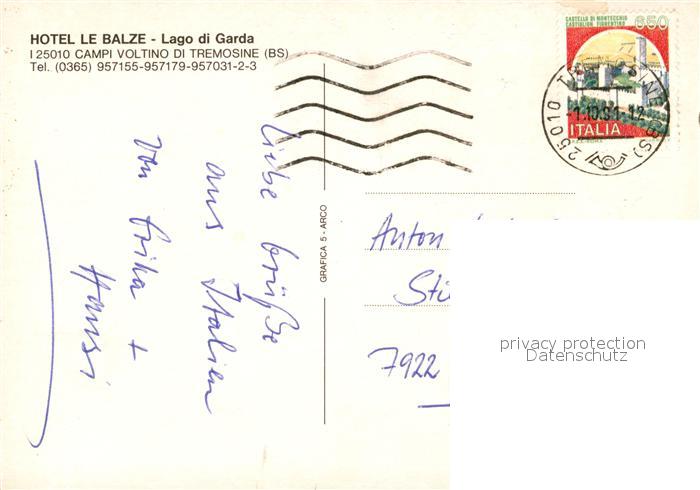 HOTEL LE BALZE - Lago di Garda
I 25010 CAMPI VOLTINO DI TREMOSINE (BS)
Tel. (0365) 957155-957179-957031-2-3
CASTELLO DI MONTECCHIO
CASTIGLION FIORENTINO
650
ITALIA
25010
(BS)
-1.10.91.12
Liebe Grüße
aus Italien
von Erika +
Hansi
GRAFICA 5 - ARCO
Anton
7922
privacy protection
Datenschutz